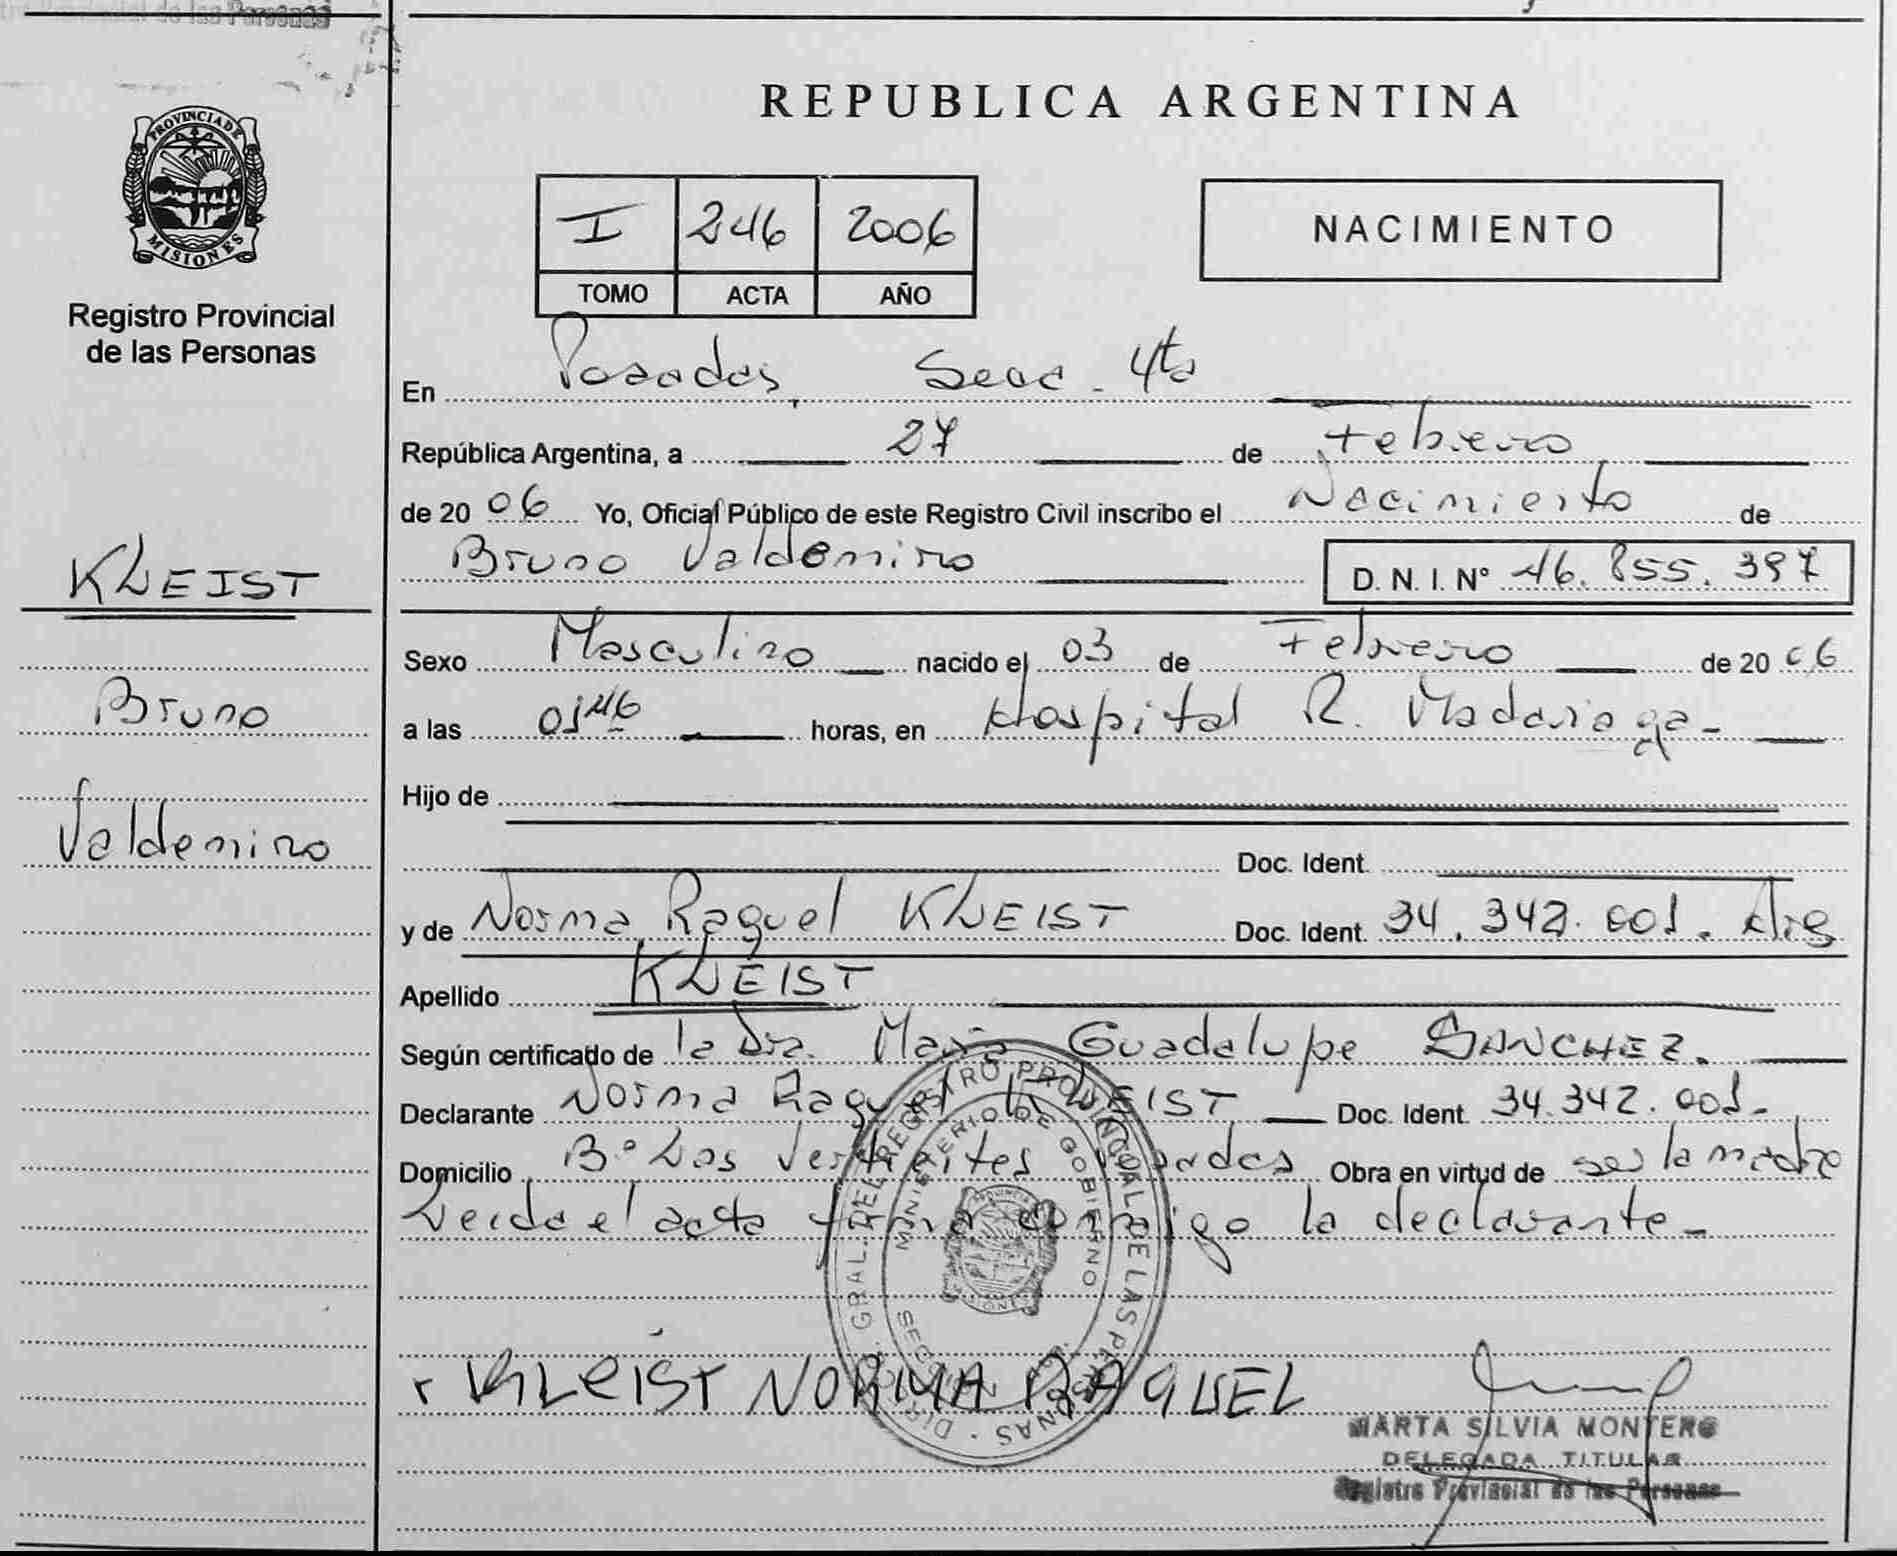 Provincial de las Personas
PROVINCIA DE
MISIONES
Registro Provincial
de las Personas
KLEIST
Bruno
Valdemiro
REPUBLICA ARGENTINA
I 246 2006
TOMO ACTA AÑO
NACIMIENTO
En Posadas, Secc. 4ta
República Argentina, a 27 de Febrero
de 20 06 Yo, Oficial Público de este Registro Civil inscribo el Nacimiento de
Bruno Valdemiro D. N. I. Nº 46.855.397
Sexo Masculino nacido el 03 de Febrero de 20 06
a las 0146 horas, en Hospital R. Madariaga-
Hijo de
Doc. Ident.
y de Norma Raquel KLEIST Doc. Ident. 34.342.001. Arg
Apellido KLEIST
Según certificado de la Dra. María Guadalupe SANCHEZ.
Declarante Norma Raquel KLEIST Doc. Ident. 34.342.001-
Domicilio Bº Las Vertientes Posadas Obra en virtud de ser la madre
Leida el acta firma conmigo la declarante-
DIREC. GRAL. DEL REGISTRO PROVINCIAL DE LAS PERSONAS
MINISTERIO DE GOBIERNO
KLEIST NORMA RAQUEL
MARTA SILVIA MONTERO
DELEGADA TITULAR
Registro Provincial de las Personas